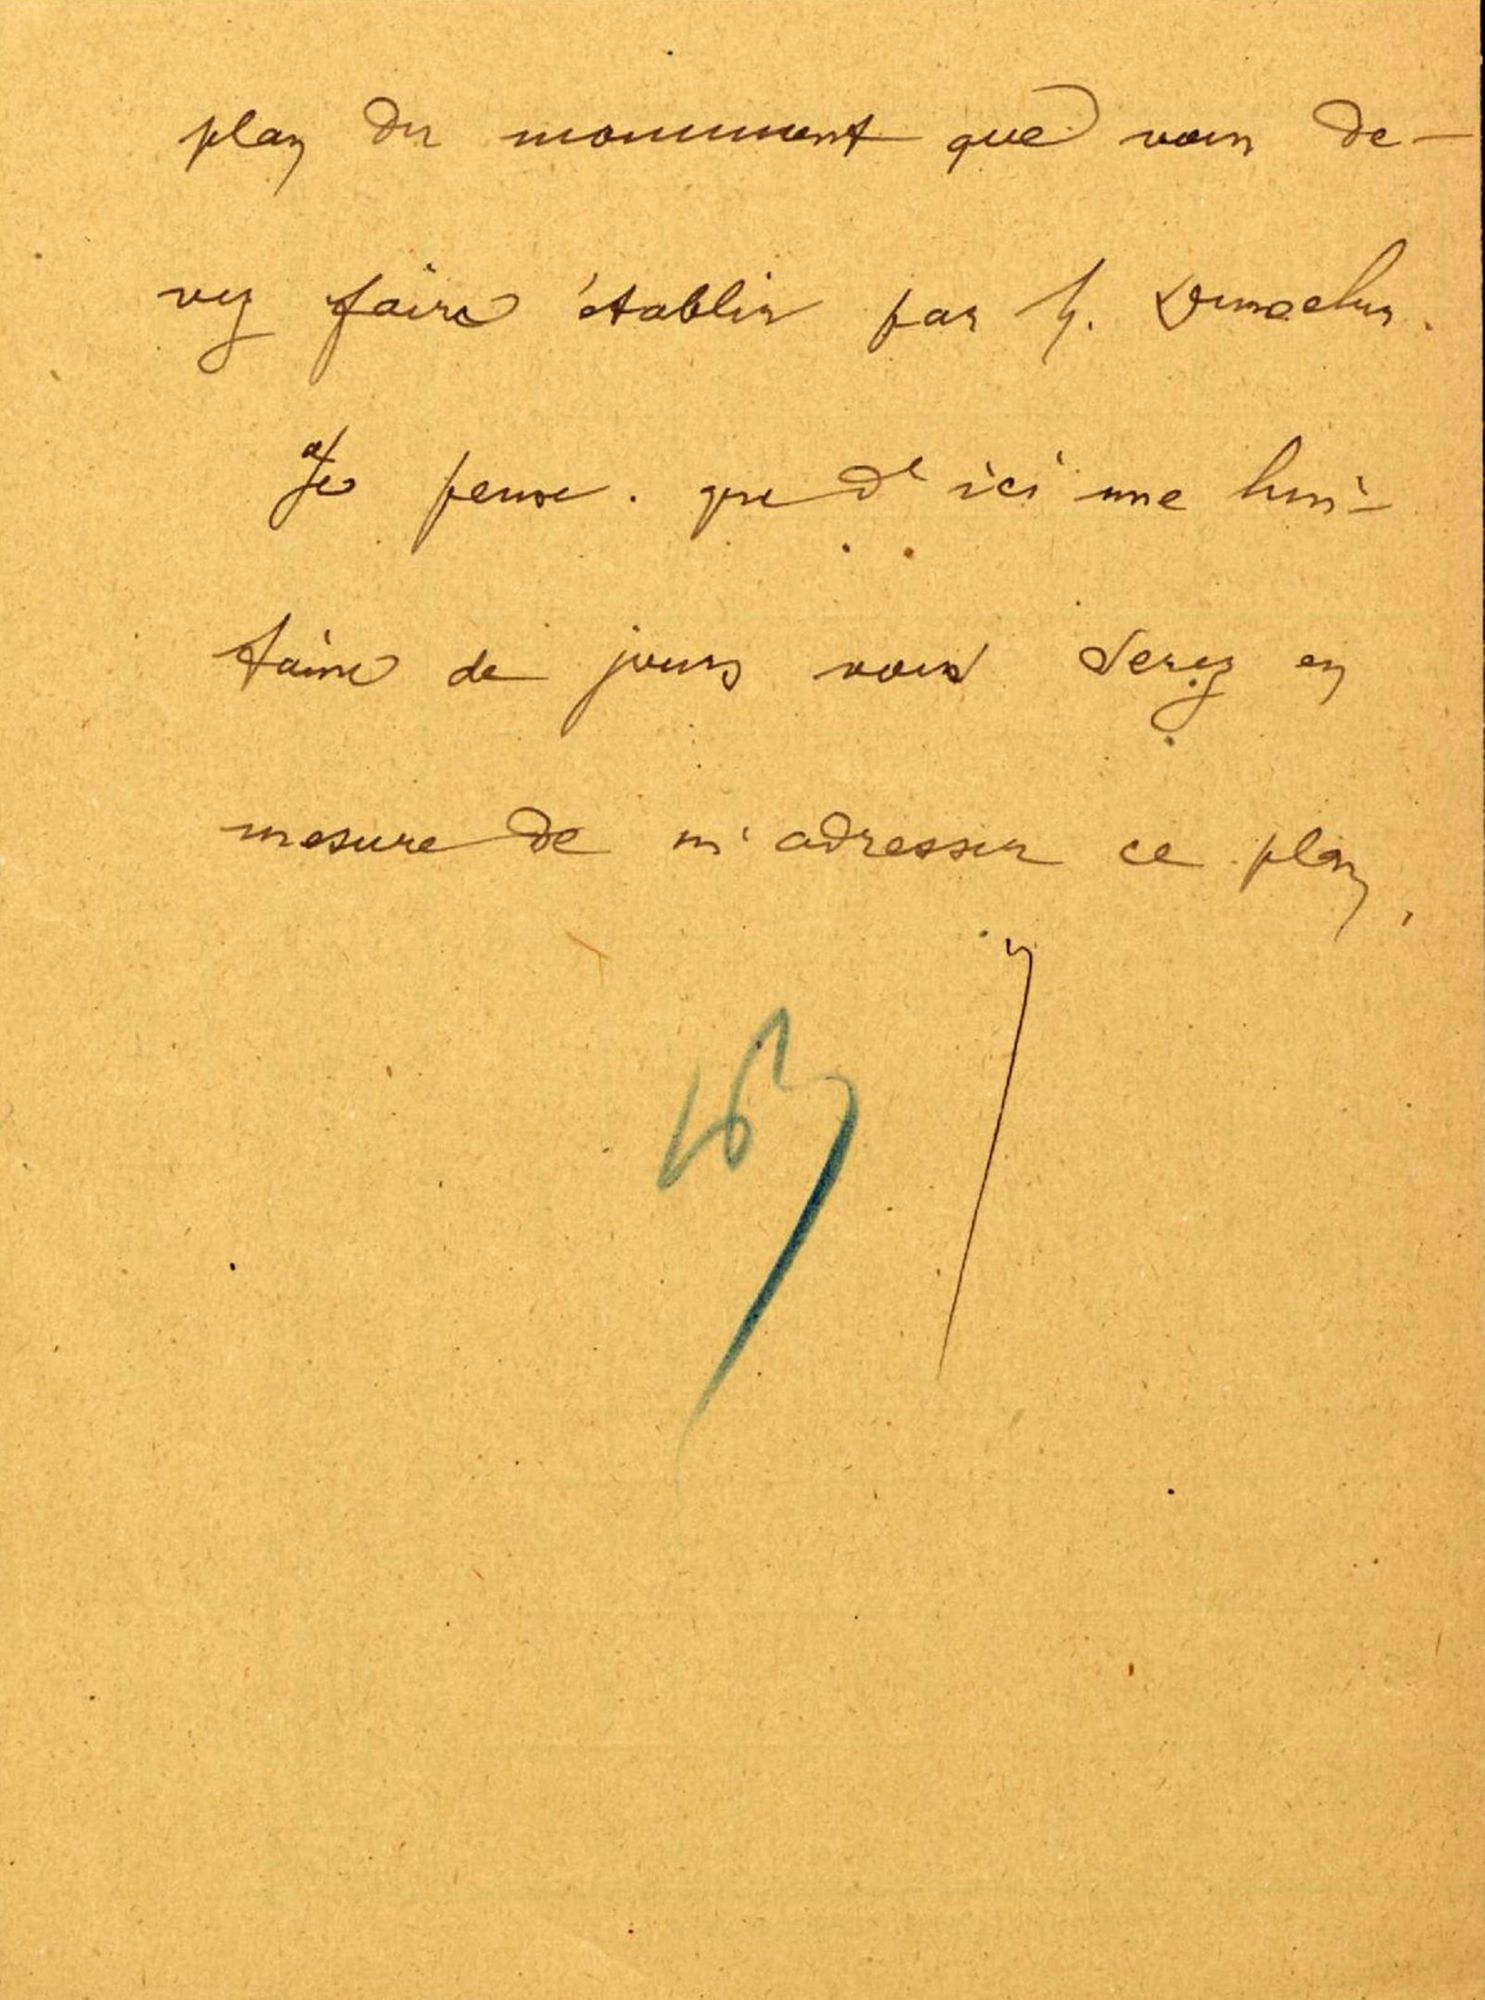 plan du monument que vous de-
vez faire établir par M.
Je pense que d'ici une hui-
taine de jours vous serez en
mesure de m'adresser ce plan,